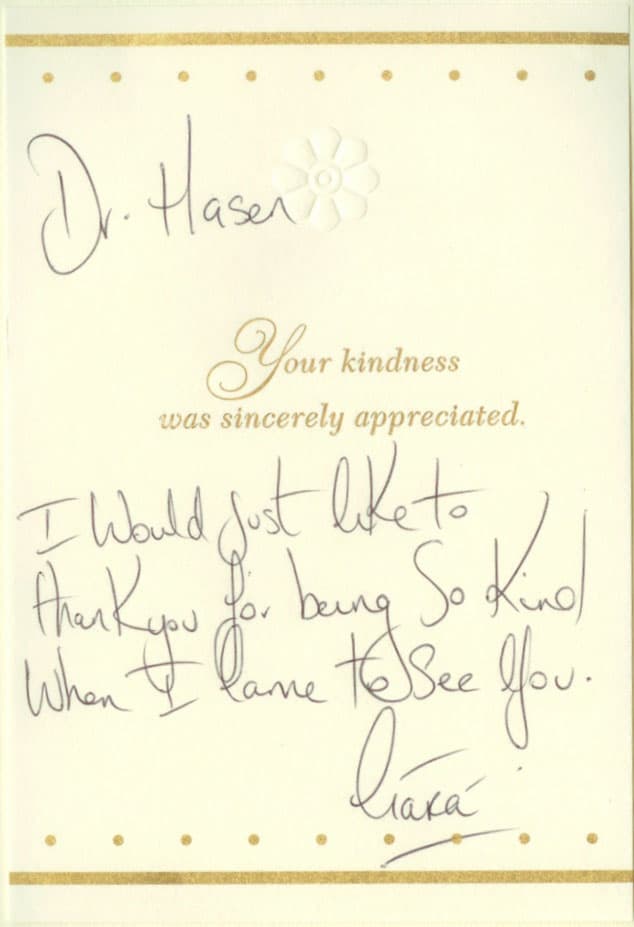 Dr. Hasen
Your kindness
was sincerely appreciated.
I Would just like to
thank you for being So Kind
When I Came to See You.